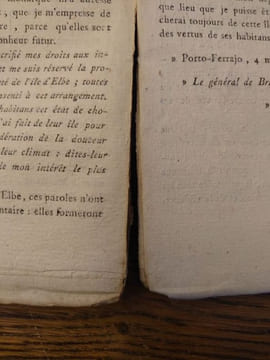 que je m'empresse de
, parce qu'elles sont
bonheur futur.
crifié mes droits aux in-
et me suis réservé la pro-
né de l'île d'Elbe ; toutes
nsenti à cet arrangement.
habitans cet état de cho-
j'ai fait de leur île pour
dération de la douceur
leur climat : dites-leur
de mon intérêt le plus
'Elbe, ces paroles n'ont
entaire : elles formeront
que lieu que je puisse êt
cherai toujours de cette îl
des vertus de ses habitans
» Porto-Ferrajo, 4 m
» Le général de Br